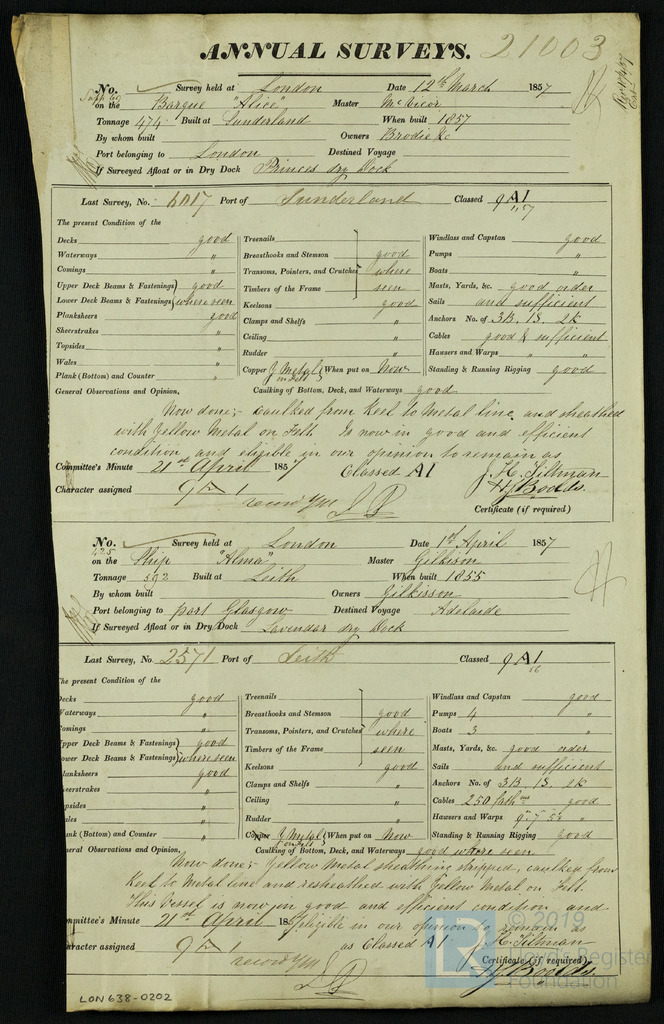 ANNUAL SURVEYS. 21003
No. Survey held at London Date 12th March 1857
on the Barque "Alice" Master McVicar
Tonnage 474 Built at Sunderland When built 1857
By whom built Owners Brodie &c
Port belonging to London Destined Voyage
If Surveyed Afloat or in Dry Dock Princes dry Dock
Last Survey, No. Port of Sunderland Classed 9 A1
The present Condition of the
Decks good
Waterways "
Comings "
Upper Deck Beams & Fastenings good
Lower Deck Beams & Fastenings where seen
Planksheers good
Sheerstrakes "
Topsides "
Wales "
Plank (Bottom) and Counter "
Treenails
Breasthooks and Stemson good
Transoms, Pointers, and Crutches where
Timbers of the Frame seen
Keelsons good
Clamps and Shelfs "
Ceiling "
Rudder "
Copper Y Metal on Felt When put on Now
Windlass and Capstan good
Pumps "
Boats "
Masts, Yards, &c. good order
Sails and sufficient
Anchors No. of 3B. 1S. 2K
Cables good & sufficient
Hawsers and Warps " " "
Standing & Running Rigging good
Caulking of Bottom, Deck, and Waterways good
General Observations and Opinion,
Now done;- caulked from Keel to Metal line and sheathed
with Yellow Metal on Felt. Is now in good and efficient
condition and eligible in our opinion to remain as
Committee's Minute 21st April 1857 Classed A1 J. H. Tilman
Character assigned 9 A 1 H J Boolds.
Certificate (if required)
No. Survey held at London Date 1st April 1857
425
on the Ship "Alma" Master Gilkison
Tonnage 592 Built at Leith When built 1855
By whom built Owners Gilkisson
Port belonging to port Glasgow Destined Voyage Adelaide
If Surveyed Afloat or in Dry Dock Lavendar dry Dock
Last Survey, No. 2571 Port of Leith Classed 9 A1
56
The present Condition of the
Decks good
Waterways "
Comings "
Upper Deck Beams & Fastenings good
Lower Deck Beams & Fastenings where seen
lanksheers good
eerstrakes "
psides "
ales "
nk (Bottom) and Counter "
Treenails
Breasthooks and Stemson good
Transoms, Pointers, and Crutches where
Timbers of the Frame seen
Keelsons good
Clamps and Shelfs "
Ceiling "
Rudder "
Copper Y Metal on felt When put on Now
Windlass and Capstan good
Pumps 4 "
Boats 3 "
Masts, Yards, &c. good order
Sails and sufficient
Anchors No. of 3B. 1S. 2K
Cables 250 fathms good
Hawsers and Warps "
Standing & Running Rigging good
Caulking of Bottom, Deck, and Waterways good where seen
eral Observations and Opinion,
Now done;- Yellow Metal sheathing stripped, caulked from
Keel to Metal line and resheathed with Yellow Metal on Felt.
This Vessel is now in good and efficient condition and
mmittee's Minute 21st April 185 eligible in our opinion to remain as
aracter assigned 9 A 1 as Classed A1 J. H. Tilman
Certificate (if required)
H J Boolds
LON638-0202
LR © 2019
Lloyd's Register
Foundation